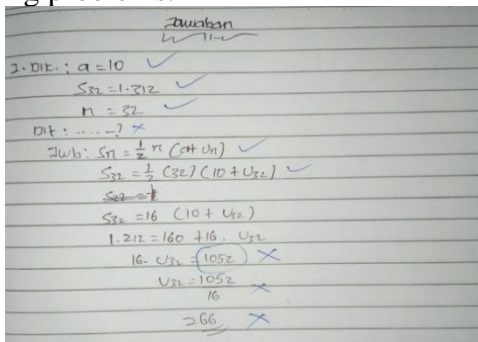 g problem.
Jawaban
1. Dik. : a = 10
S32 = 1.312
n = 32
Dit : .... - ?
Jwb : Sn = 1/2 n (a + Un)
S32 = 1/2 (32) (10 + U32)
S32 = 16 (10 + U32)
1.212 = 160 + 16. U32
16. U32 = 1052
U32 = 1052/16
= 66